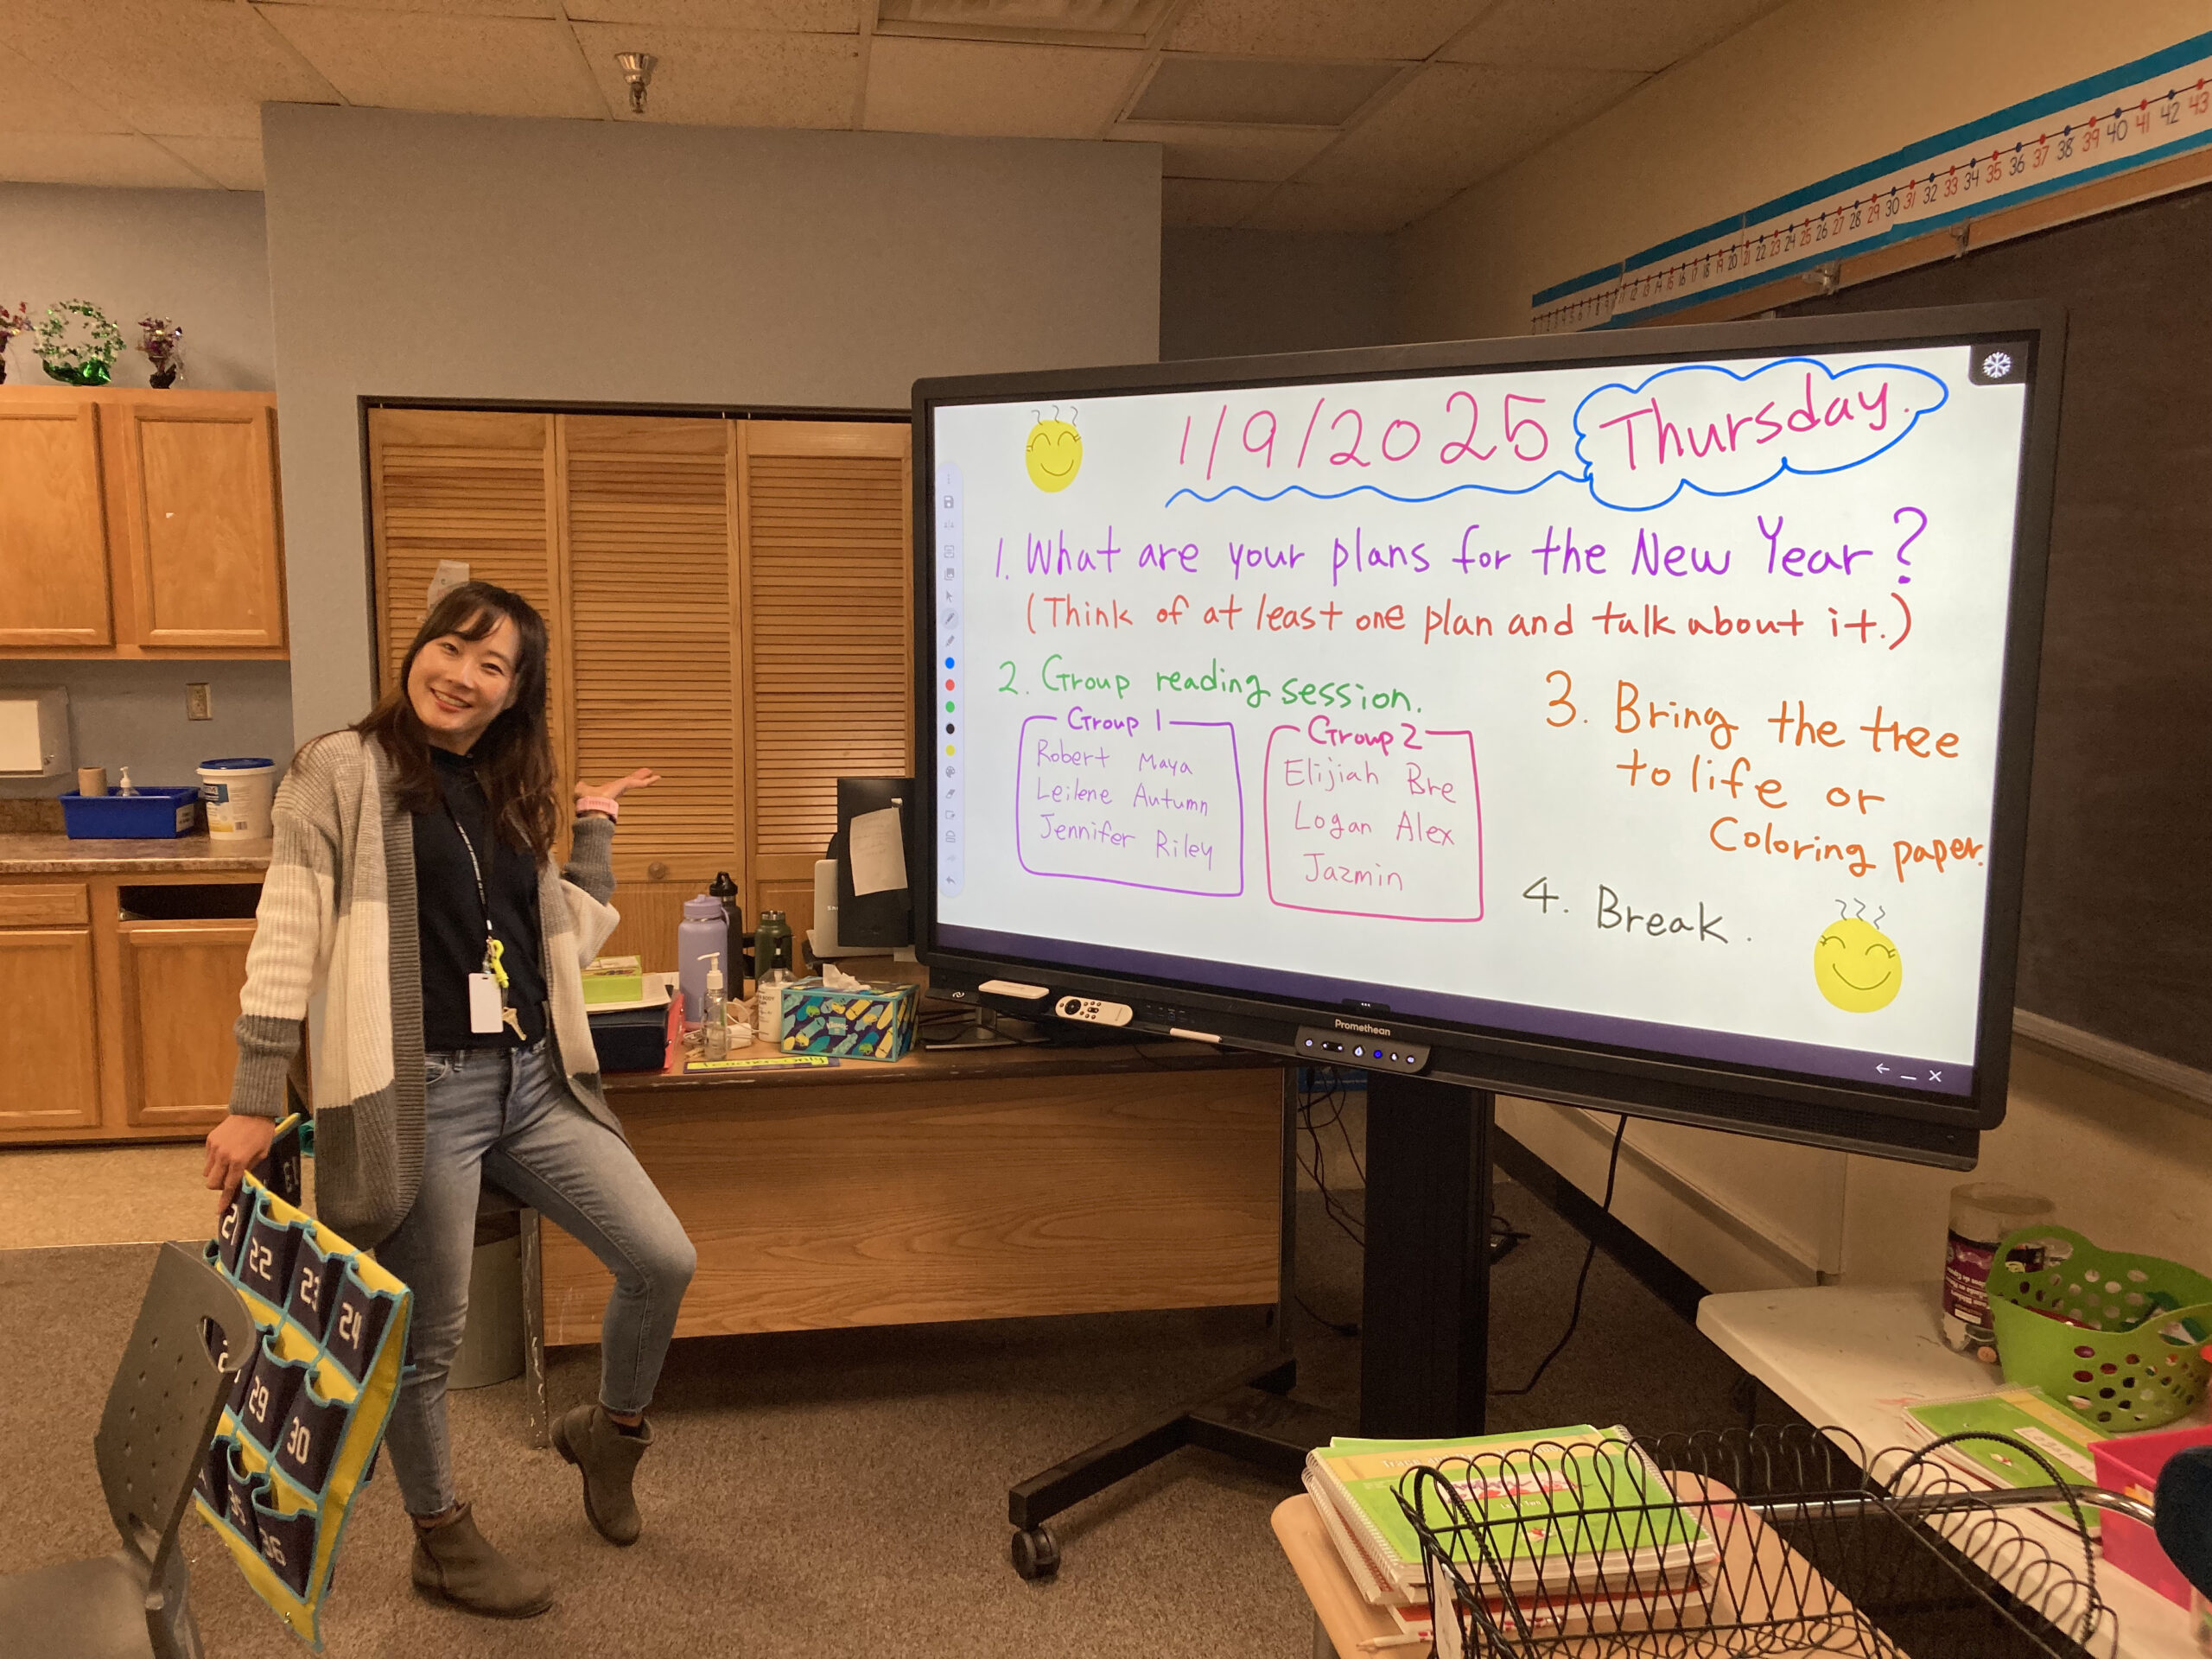 1/9/2025 Thursday.
1. What are your plans for the New Year?
(Think of at least one plan and talk about it.)
2. Group reading session.
Group 1
Robert Maya
Leilene Autumn
Jennifer Riley
Group 2
Elijiah Bre
Logan Alex
Jazmin
3. Bring the tree
to life or
Coloring paper.
4. Break.
Promethean
21 22 23 24
29 30
36
11 12 13 14 15 16 17 18 19 20 21 22 23 24 25 26 27 28 29 30 31 32 33 34 35 36 37 38 39 40 41 42 43